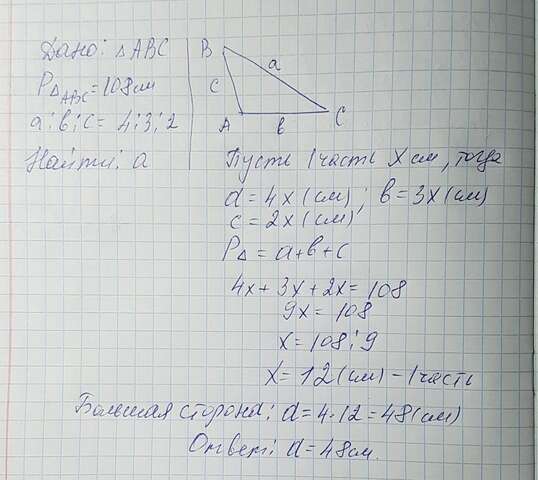 Дано: △ABC
P△ABC = 108см
a:в:c = 4:3:2
Найти: a
B
a
c
A
в
C
Пусть 1 часть x см, тогда
a = 4x (см); в = 3x (см)
c = 2x (см)
P△ = a+в+c
4x + 3x + 2x = 108
9x = 108
x = 108:9
x = 12 (см) - 1 часть
Большая сторона: a = 4·12 = 48 (см)
Ответ: a = 48см.